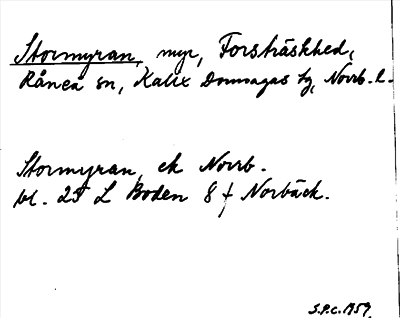 Stormyran, myr, Forsträskhed,
Råneå sn, Kalix Domsagas tg, Norrb. l.
Stormyran, ek Norrb.
bl. 25 L Boden 8 f Norbäck.
S.P.C. 1959